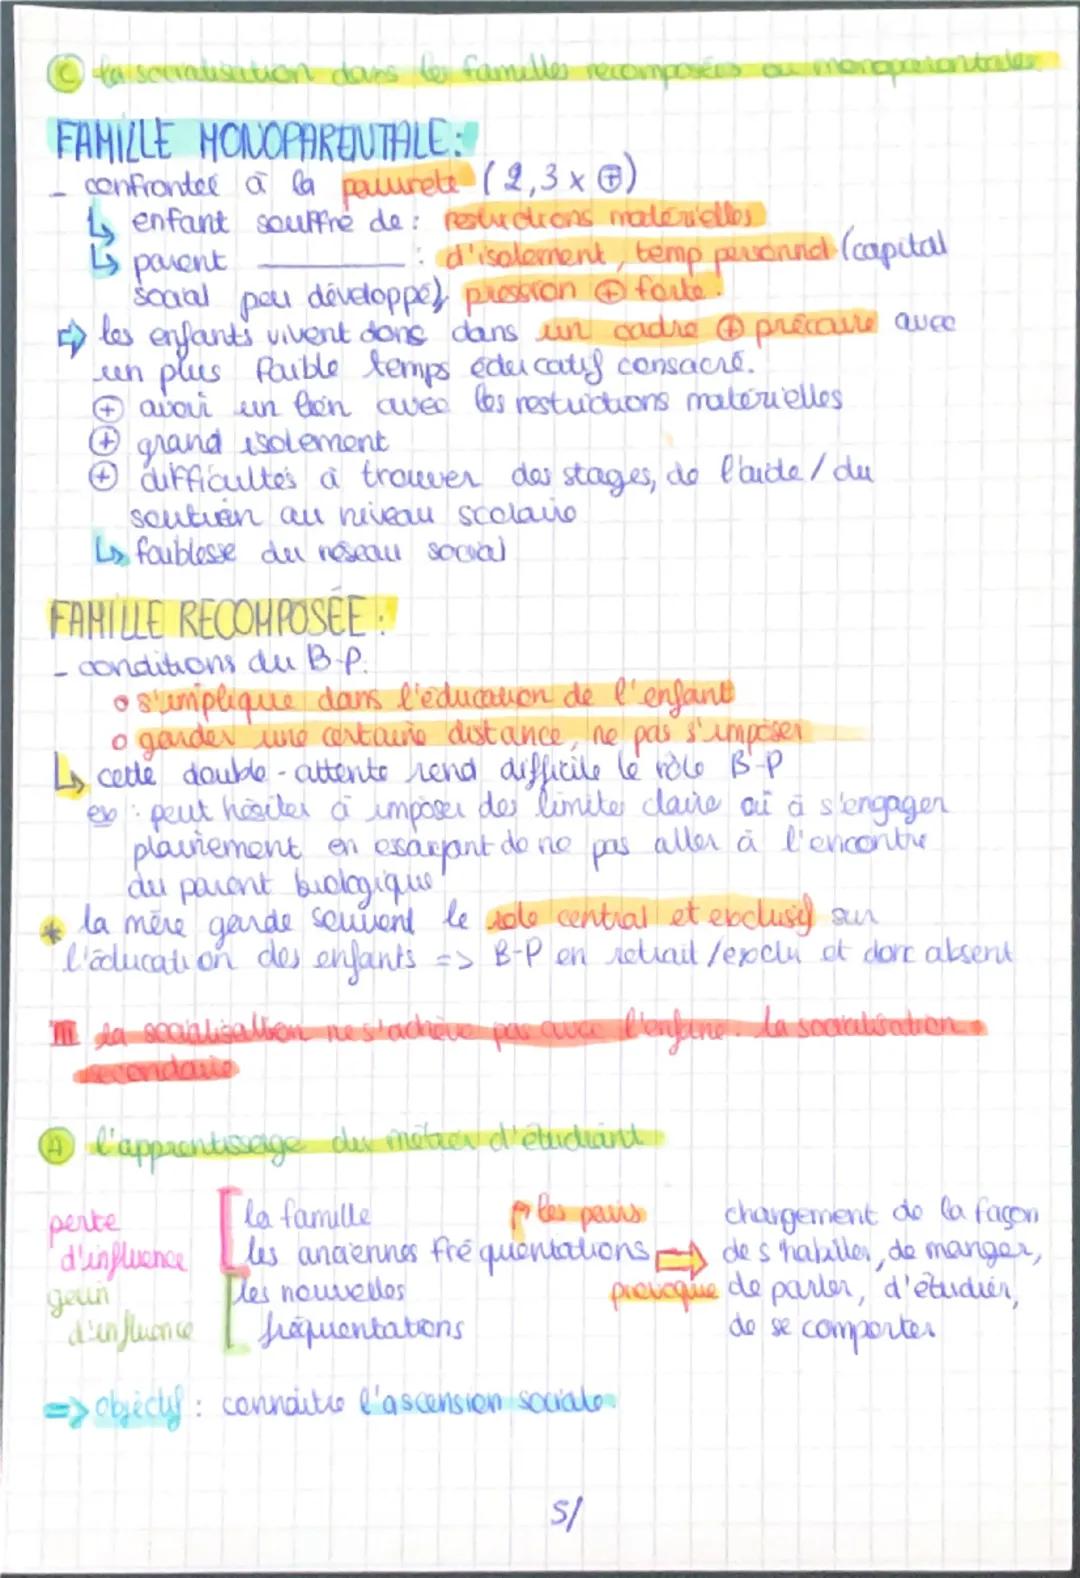 C la socialisation dans les familles recomposées ou monoparentales
FAMILLE MONOPARENTALE :
- confrontée à la pauvreté (2,3 x ⊕)
↳ enfant souffre de : restrictions matérielles
↳ parent ———— : d'isolement, temp personnel (capital
social peu développé), pression ⊕ forte.
⇨ les enfants vivent donc dans un cadre ⊕ précaire avec
un plus faible temps éducatif consacré.
⊕ avoir un lien avec les restrictions matérielles
⊕ grand isolement
⊕ difficultés à trouver des stages, de l'aide / du
soutien au niveau scolaire
↳ faiblesse du réseau social
FAMILLE RECOMPOSÉE :
- conditions du B-P.
o s'implique dans l'éducation de l'enfant
o garder une certaine distance, ne pas s'imposer
↳ cette double-attente rend difficile le rôle B-P
ex : peut hésiter à imposer des limites claire où à s'engager
plainement en essayant de ne pas aller à l'encontre
du parent biologique
* la mère garde souvent le role central et exclusif sur
l'éducation des enfants => B-P en retrait / exclu et donc absent
III la socialisation ne s'achève pas avec l'enfance. La socialisation
secondaire
A l'apprentissage du métier d'étudiant
perte d'influence
la famille
les anciennes fréquentations
gain d'influence
les nouvelles
fréquentations
les pairs
provoque
changement de la façon
de s'habiller, de manger,
de parler, d'étudier,
de se comporter
=> objectif : connaître l'ascension sociale
5/